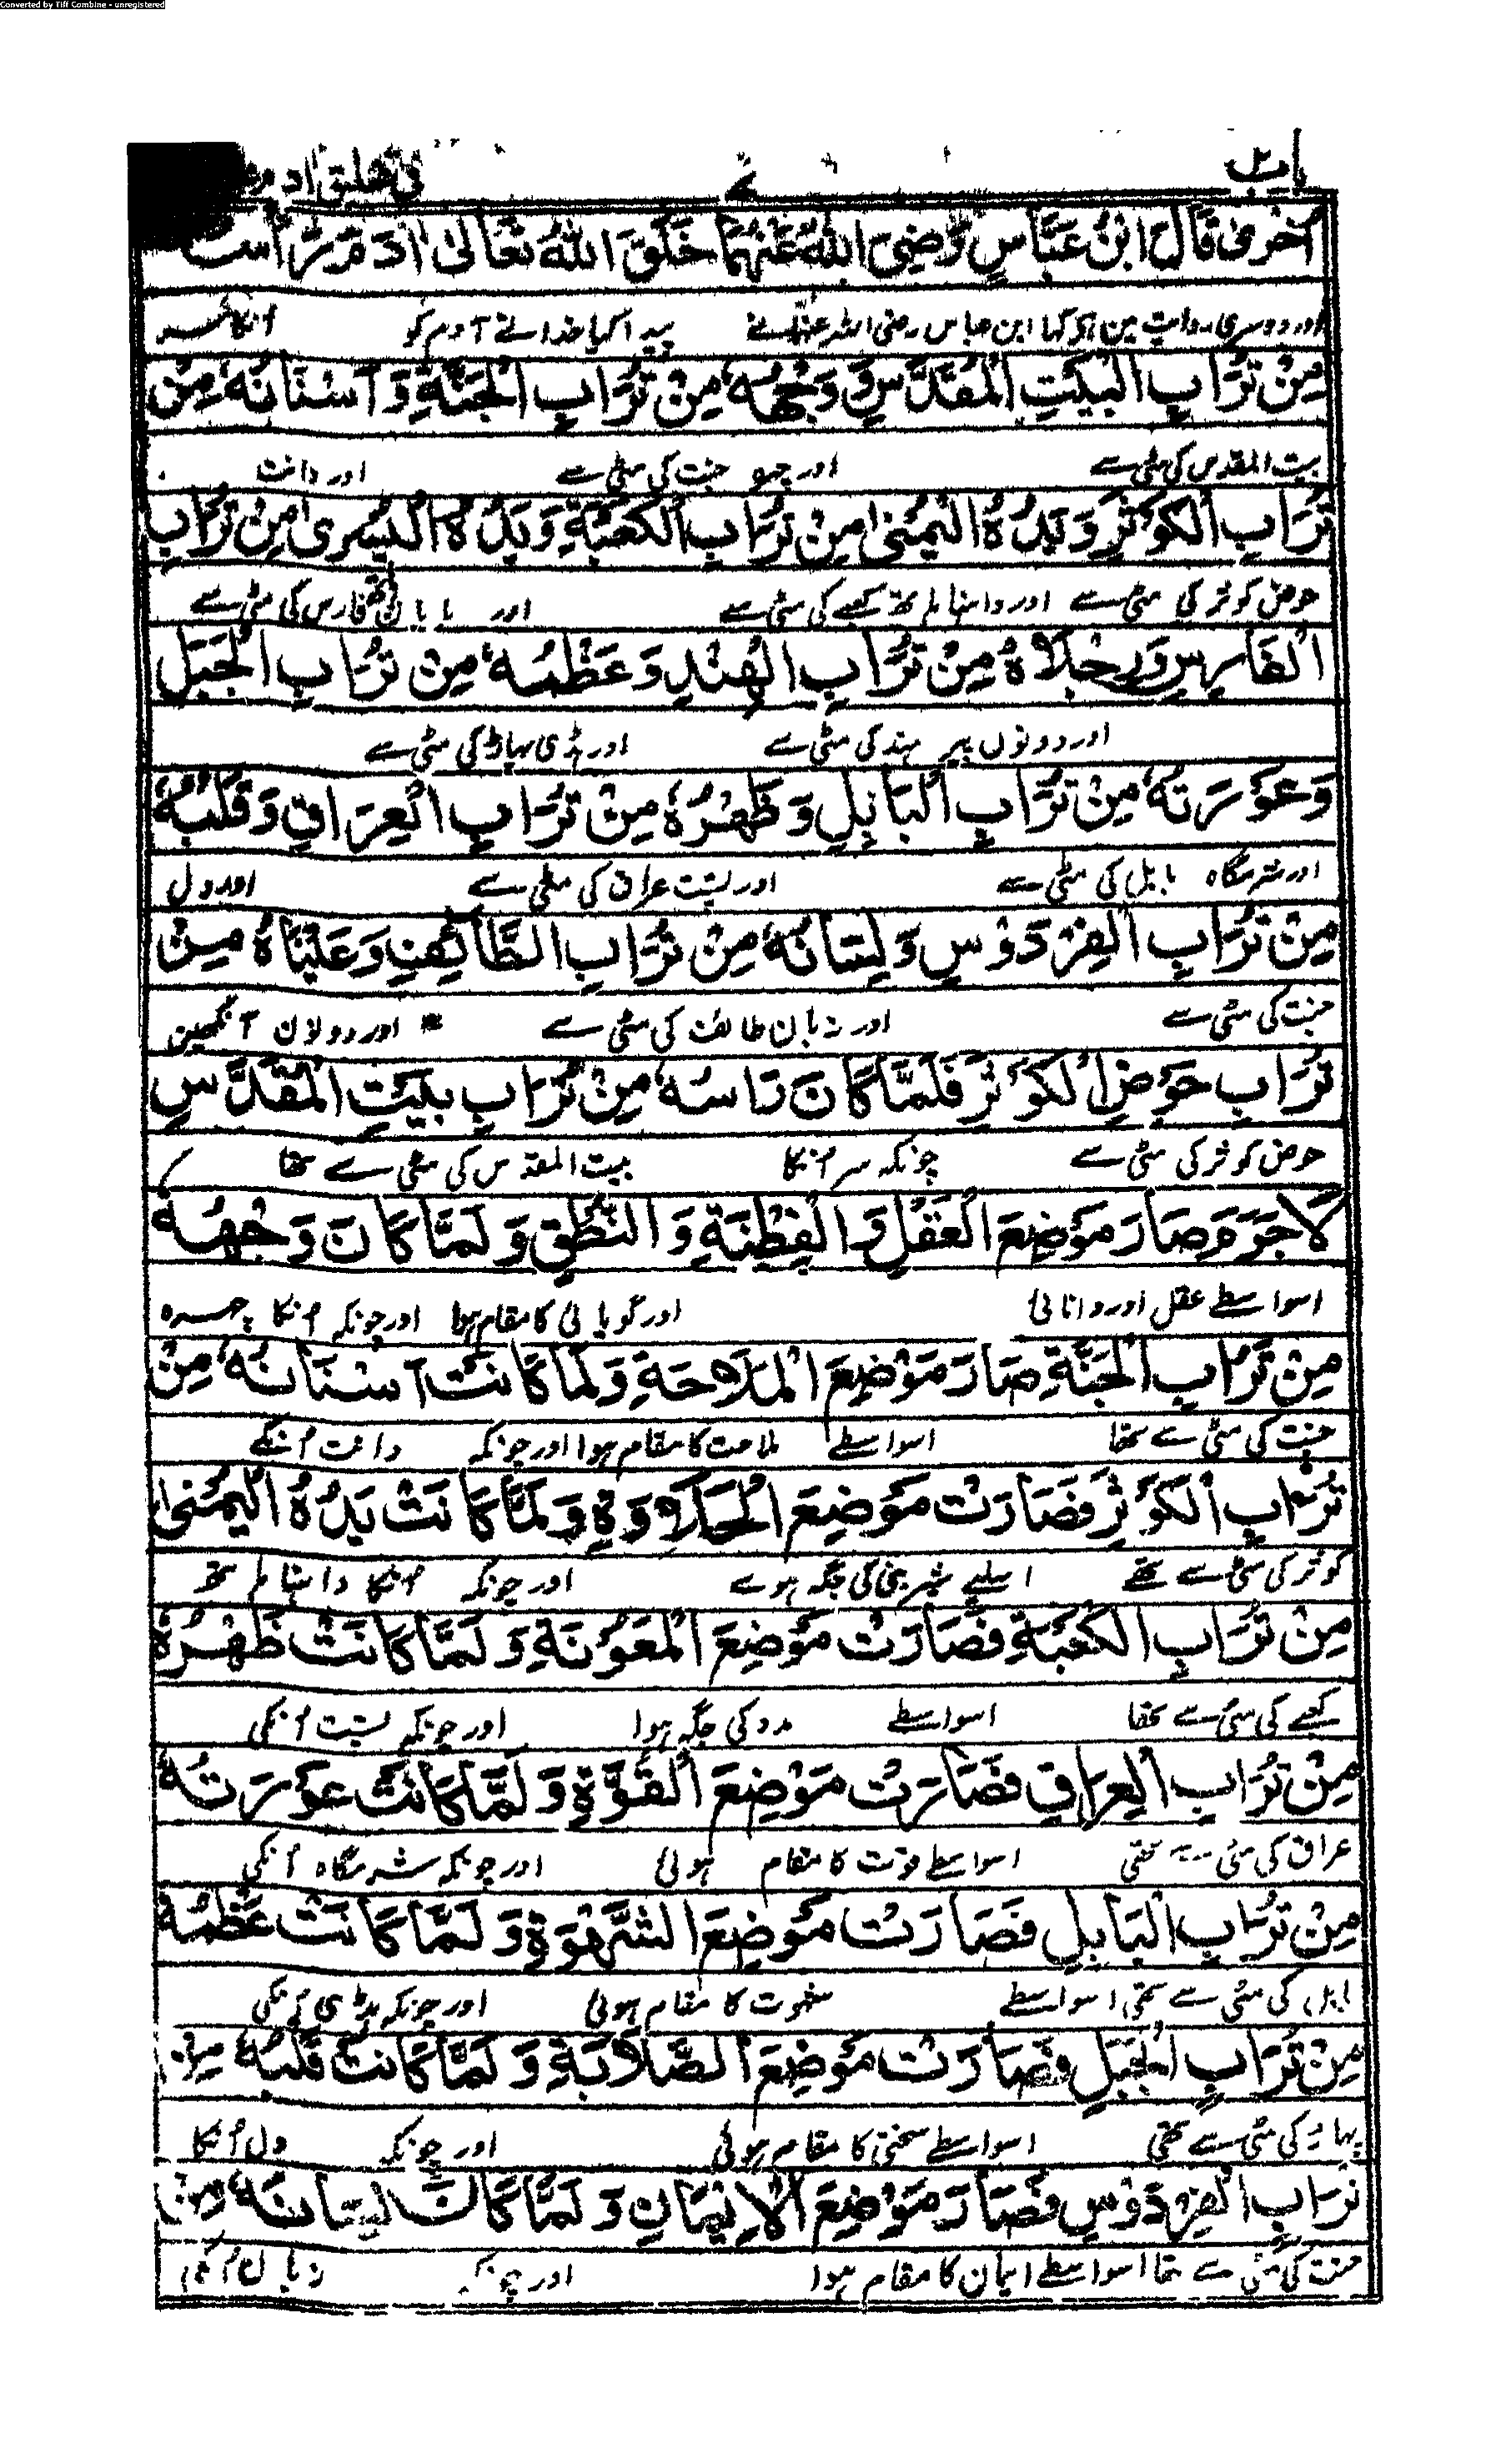 Converted by Tiff Combine - unregistered
باب ٢ ٧ فى تخليق اٰدم
اُخْرٰى قَالَ ابْنُ عَبَّاسٍ رَضِىَ اللهُ عَنْهُمَا خَلَقَ اللهُ تَعَالٰى اٰدَمَ رَأْسَهٗ
اور دوسری روایت مین ہے کہا ابن عباس رضی اللہ عنہما نے پیدا کیا خدا نے آدم کو اُنکا سر
مِنْ تُرَابِ الْبَيْتِ الْمُقَدَّسِ وَوَجْهُهٗ مِنْ تُرَابِ الْجَنَّةِ وَاَسْنَانُهٗ مِنْ
بیت المقدس کی مٹی سے اور چہرہ جنت کی مٹی سے اور دانت
تُرَابِ الْكَوْثَرِ وَيَدُهُ الْيُمْنٰى مِنْ تُرَابِ الْكَعْبَةِ وَيَدُهُ الْيُسْرٰى مِنْ تُرَابِ
حوض کوثر کی مٹی سے اور داہنا ہاتھ کعبے کی مٹی سے اور بایاں ہاتھ فارس کی مٹی سے
الْفَارِسِ وَرِجْلَاهُ مِنْ تُرَابِ الْهِنْدِ وَعَظْمُهٗ مِنْ تُرَابِ الْجَبَلِ
اور دونوں پیر ہند کی مٹی سے اور ہڈی پہاڑ کی مٹی سے
وَعَوْرَتُهٗ مِنْ تُرَابِ الْبَابِلِ وَظَهْرُهٗ مِنْ تُرَابِ الْعِرَاقِ وَقَلْبُهٗ
اور شرمگاہ بابل کی مٹی سے اور پشت عراق کی مٹی سے اور دل
مِنْ تُرَابِ الْفِرْدَوْسِ وَلِسَانُهٗ مِنْ تُرَابِ الطَّائِفِ وَعَيْنَاهُ مِنْ
جنت کی مٹی سے اور زبان طائف کی مٹی سے * اور دونون آنکھین
تُرَابِ حَوْضِ الْكَوْثَرِ فَلَمَّا كَانَ رَاْسُهٗ مِنْ تُرَابِ بَيْتِ الْمُقَدَّسِ
حوض کوثر کی مٹی سے چونکہ سر اُنکا بیت المقدس کی مٹی سے تھا
لَاجَرَمَ صَارَ مَوْضِعَ الْعَقْلِ وَالْفِطْنَةِ وَالنُّطْقِ وَلَمَّا كَانَ وَجْهُهٗ
اسواسطے عقل اور دانائی اور گویائی کا مقام ہوا اور چونکہ اُنکا چہرہ
مِنْ تُرَابِ الْجَنَّةِ صَارَ مَوْضِعَ الْمَلَاحَةِ وَلَمَّا كَانَتْ اَسْنَانُهٗ مِنْ
جنت کی مٹی سے تھا اسواسطے ملاحت کا مقام ہوا اور چونکہ دانت اُنکے
تُرَابِ الْكَوْثَرِ فَصَارَتْ مَوْضِعَ الْحَلَاوَةِ وَلَمَّا كَانَتْ يَدُهُ الْيُمْنٰى
کوثر کی مٹی سے تھے اسلیے شیرینی کی جگہ ہوے اور چونکہ اُنکا داہنا ہاتھ
مِنْ تُرَابِ الْكَعْبَةِ فَصَارَتْ مَوْضِعَ الْمَعُوْنَةِ وَلَمَّا كَانَتْ ظَهْرُهٗ
کعبے کی مٹی سے تھا اسواسطے مدد کی جگہ ہوا اور چونکہ پشت اُنکی
مِنْ تُرَابِ الْعِرَاقِ فَصَارَتْ مَوْضِعَ الْقُوَّةِ وَلَمَّا كَانَتْ عَوْرَتُهٗ
عراق کی مٹی سے تھی اسواسطے قوت کا مقام ہوئی اور چونکہ شرمگاہ اُنکی
مِنْ تُرَابِ الْبَابِلِ فَصَارَتْ مَوْضِعَ الشَّهْوَةِ وَلَمَّا كَانَتْ عَظْمُهٗ
بابل کی مٹی سے تھی اسواسطے شہوت کا مقام ہوئی اور چونکہ ہڈی اُنکی
مِنْ تُرَابِ الْجَبَلِ فَصَارَتْ مَوْضِعَ الصَّلَابَةِ وَلَمَّا كَانَتْ قَلْبُهٗ مِنْ
پہاڑ کی مٹی سے تھی اسواسطے سختی کا مقام ہوئی اور چونکہ دل اُنکا
تُرَابِ الْفِرْدَوْسِ فَصَارَ مَوْضِعَ الْاِيْمَانِ وَلَمَّا كَانَ لِسَانُهٗ مِنْ
جنت کی مٹی سے تھا اسواسطے ایمان کا مقام ہوا اور چونکہ زبان اُنکی